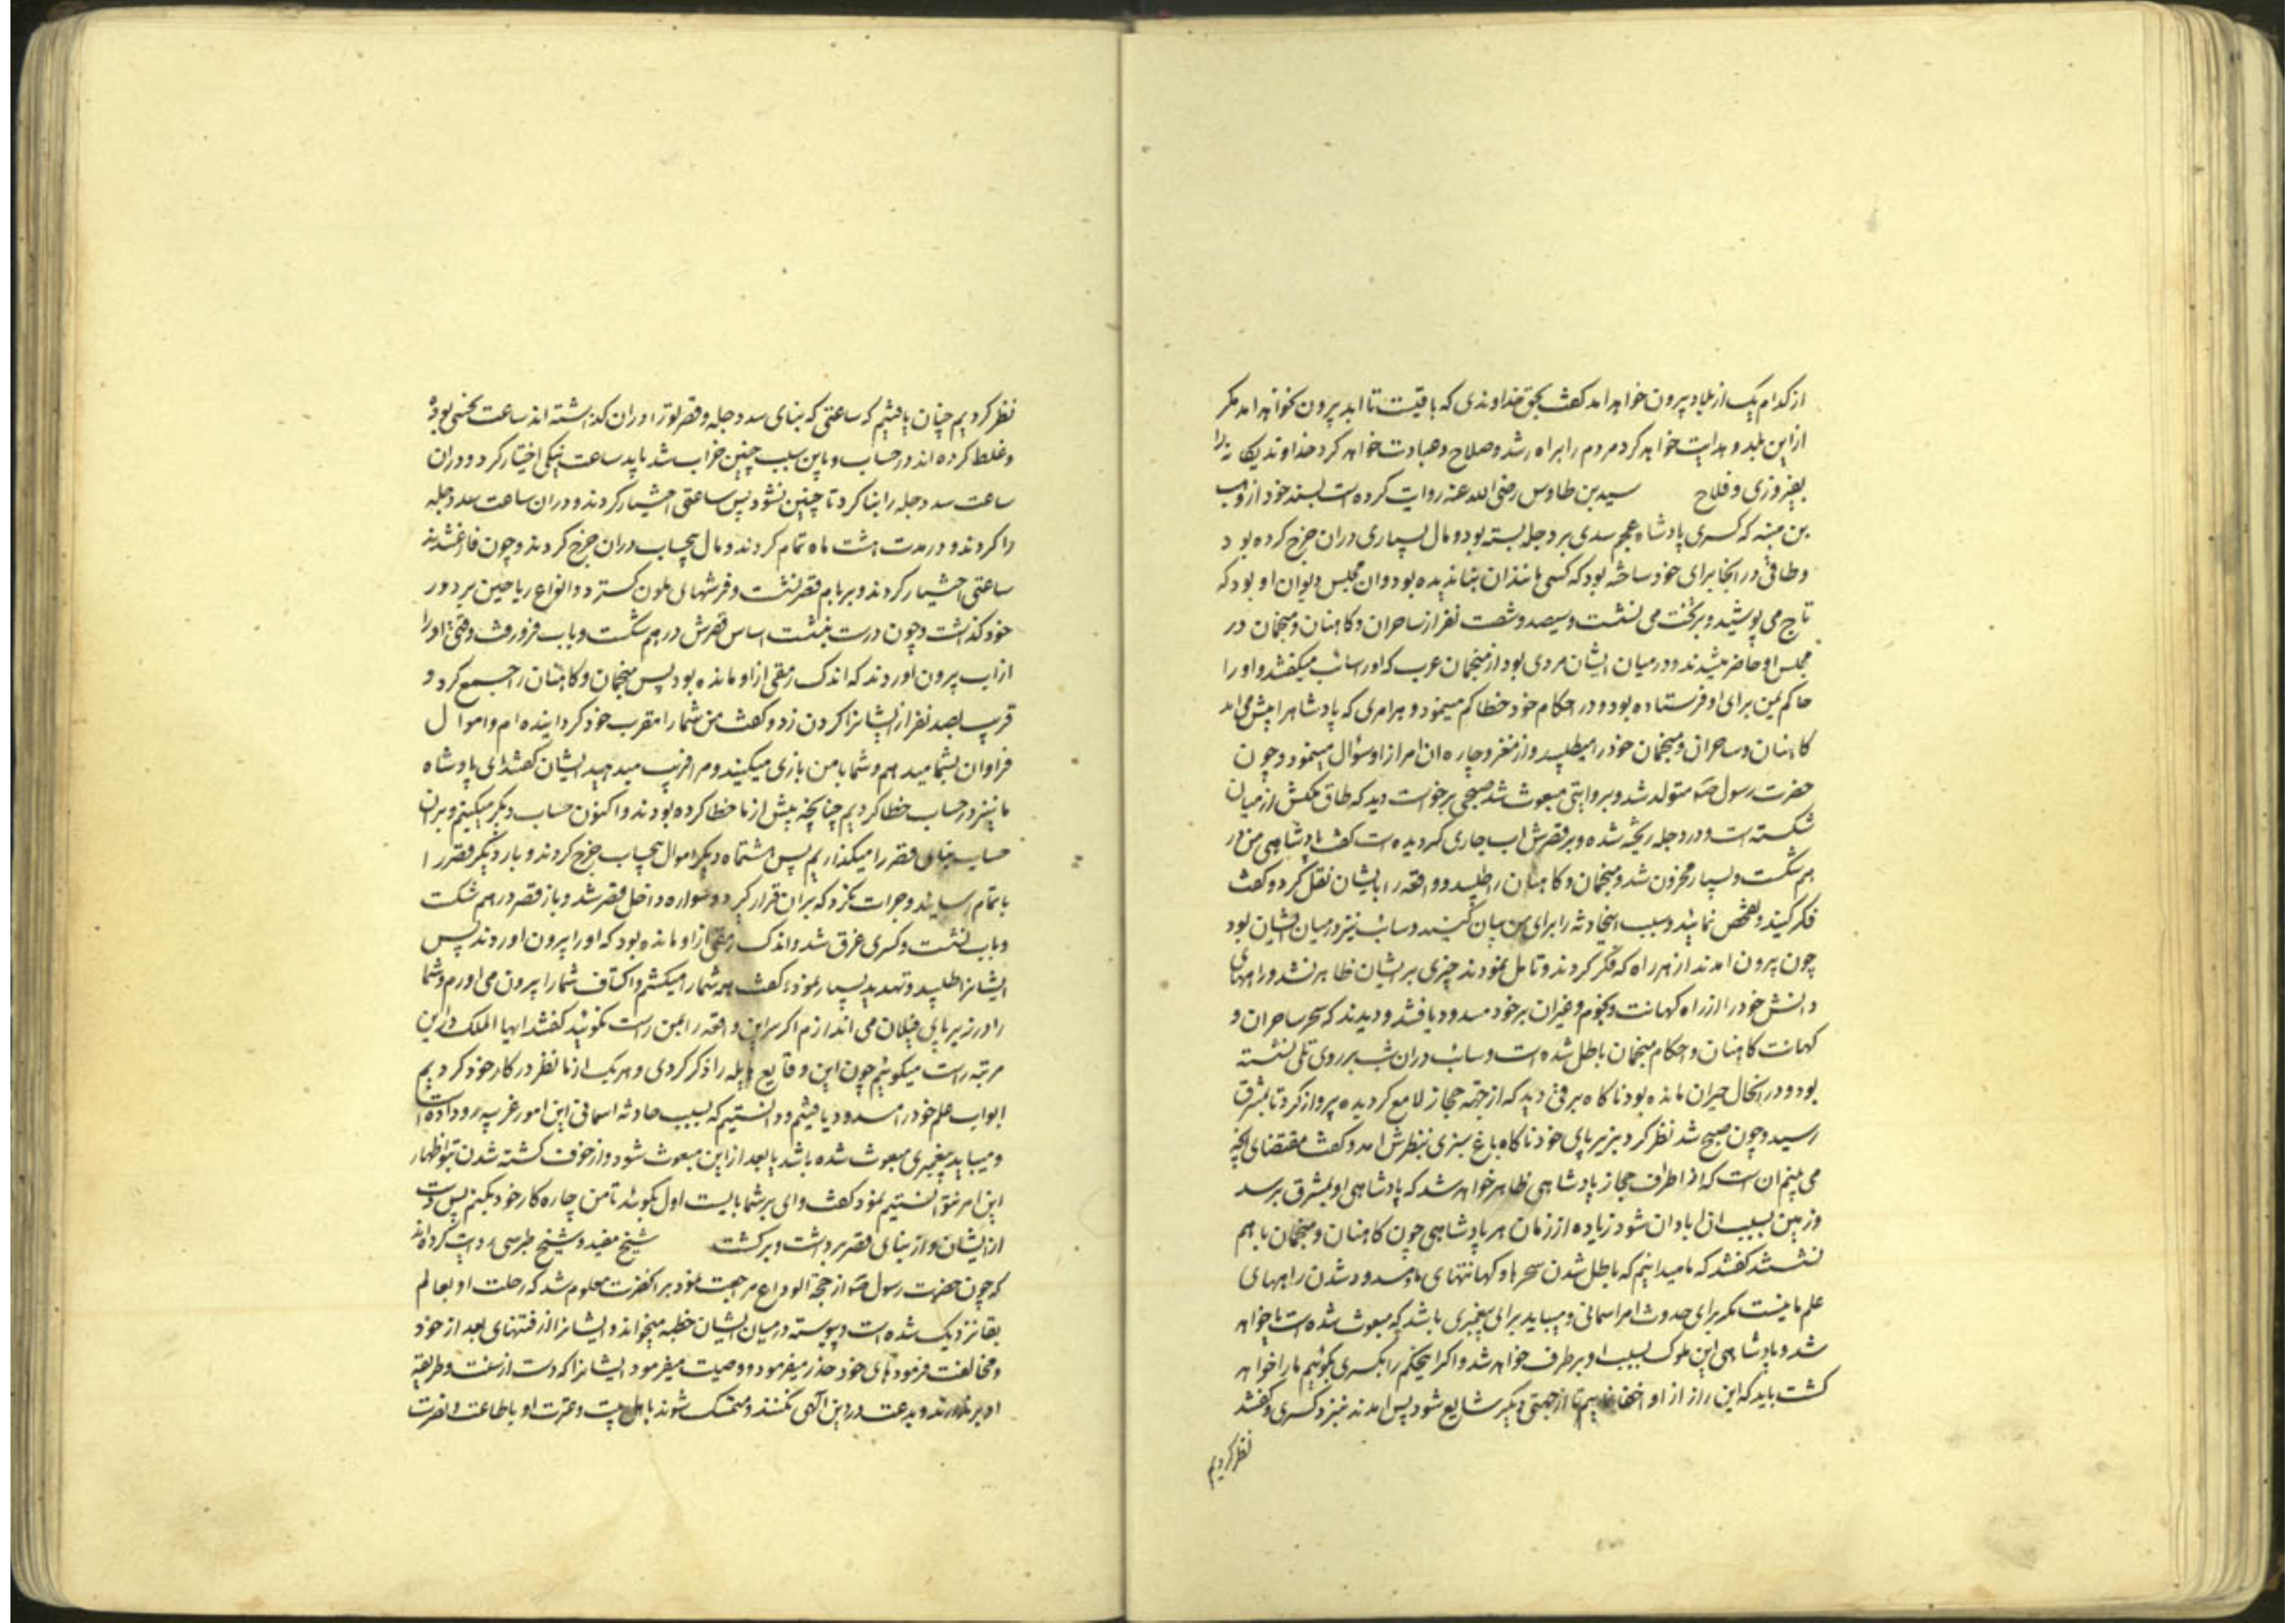 از کدام یک از بلاد بیرون خواهد امد کفت بحق خداوندی که باقیست تا ابد بیرون نخواهد امد مکر
ازین بلد و هدایت خواهد کرد مردم را براه رشد و صلاح و عبادت خواهد کرد خداوند یکانه را
بفیروزی و فلاح سید بن طاوس رضی الله عنه روایت کرده است بسند خود از وهب
بن منبه که کسری پادشاه عجم سدی بر دجله بسته بود و مال بسیاری دران خرج کرده بود
و طاقی در انجا برای خود ساخته بود که کسی مانند ان بنا ندیده بود و ان مجلس دیوان او بود که
تاج می پوشید و بر تخت می نشست و سیصد و شصت نفر از ساحران و کاهنان و منجمان در
مجلس او حاضر میشدند و در میان ایشان مردی بود از منجمان عرب که او را سائب میکفتند و او را
حاکم یمن برای او فرستاده بود و در احکام خود خطا کم مینمود و هر امری که پادشاه را پیش می امد
کاهنان و ساحران و منجمان خود را میطلبید و از مفر و چاره ان امر از او سؤال مینمود و چون
حضرت رسول ص متولد شد و بروایتی مبعوث شد صبحی برخواست دید که طاق ملکش از میان
شکسته است و در دجله ریخته شده و بر قصرش اب جاری کردیده است کفت پادشاهی من در
هم شکست و بسیار محزون شد و منجمان و کاهنان را طلبید و واقعه را بایشان نقل کرد و کفت
فکر کنید و تفحص نمائید و سبب اینحادثه را برای من بیان کنید و سائب نیز در میان ایشان بود
چون بیرون امدند از هر راه که فکر کردند و تامل نمودند چیزی بر ایشان ظاهر نشد و راههای
دانش خود را از راه کهانت و نجوم و غیر ان بر خود مسدود یافتند و دیدند که سحر ساحران و
کهانت کاهنان و احکام منجمان باطل شده است و سائب دران شب بر روی تلی نشسته
بود و در انحال حیران مانده بود ناکاه برقی دید که از جهة حجاز لامع کردیده پرواز کرد تا بمشرق
رسید و چون صبح شد نظر کرد بزیر پای خود ناکاه باغ سبزی بنظرش امد و کفت مقتضای انچه
می بینم ان است که از اطراف حجاز پادشاهی ظاهر خواهد شد که پادشاهی او بمشرق برسد
و زمین بسبب ان ابادان شود زیاده از زمان هر پادشاهی چون کاهنان و منجمان با هم
نشستند کفتند که ما میدانیم که باطل شدن سحرها و کهانتهای ما و مسدود شدن راههای
علم ما نیست مکر برای حدوث امر اسمانی و میباید برای پیغمبری باشد که مبعوث شده است یا خواهد
شد و پادشاهی این ملوک بسبب او برطرف خواهد شد و اکر اینحکم را بکسری بکوئیم ما را خواهد
کشت باید که این راز از او اخفا نمائیم تا از جهتی دیکر شایع شود پس امدند بنزد کسری و کفتند
نظر کردیم
نظر کردیم چنان یافتیم که ساعتی که بنای سد دجله و قصر تو را دران کذاشته اند ساعت نحسی بوده
و غلط کرده اند در حساب و باین سبب چنین خراب شد باید ساعت نیکی اختیار کرد و دران
ساعت سد دجله را بنا کرد تا چنین نشود پس ساعتی اختیار کردند و دران ساعت سد دجله
را کردند و در مدت هشت ماه تمام کردند و مال بیحساب دران خرج کردند و چون فارغ شدند
ساعتی اختیار کردند و بر بام قصر نشست و فرشهای ملون کسترد و انواع ریاحین بر دور
خود کذاشت و چون درست بنشست اساس قصرش در هم شکست و باب فرو رفت و وقتی او را
از اب بیرون اوردند که اندک رمقی از او مانده بود پس منجمان و کاهنان را جمع کرد و
قریب بصد نفر از ایشانرا کردن زد و کفت من شما را مقرب خود کردانیده ام و اموال
فراوان بشما میدهم و شما با من بازی میکنید و مرا فریب میدهید ایشان کفتند ای پادشاه
ما نیز در حساب خطا کردیم چنانچه پیش از ما خطا کرده بودند و اکنون حساب دیکر میکنیم و بران
حساب بنای قصر را میکذاریم پس هشتماه دیکر اموال بیحساب خرج کردند و بار دیکر قصر را
باتمام رسانیدند و جرات نکرد که بران قرار کیرد و سواره داخل قصر شد و باز قصر در هم شکست
و باب نشست و کسری غرق شد و اندک رمقی از او مانده بود که او را بیرون اوردند پس
ایشانرا طلبید و تهدید بسیار نموده کفت همه شما را میکشم و اکتاف شما را بیرون می اورم و شما
را در زیر پای فیلان می اندازم اکر سر این واقعه را بمن راست نکوئید کفتند ایها الملک در این
مرتبه راست میکوئیم چون این وقایع هایله را ذکر کردی و هر یک از ما نظر در کار خود کردیم
ابواب علم خود را مسدود یافتیم و دانستیم که بسبب حادثه اسمانی این امور غریبه رو داده است
و میباید پیغمبری مبعوث شده باشد یا بعد ازین مبعوث شود و از خوف کشته شدن بتو اظهار
این امر نتوانستیم نمود کفت وای بر شما بایست اول بکوئید تا من چاره کار خود بکنم پس دست
از ایشان و از بنای قصر برداشت و برکشت شیخ مفید و شیخ طبرسی روایت کرده اند
که چون حضرت رسول ص از حجة الوداع مراجعت نمود بر انحضرت معلوم شد که رحلت او بعالم
بقا نزدیک شده است و پیوسته در میان ایشان خطبه میخواند و ایشانرا از فتنهای بعد از خود
و مخالفت فرمودهای خود حذر میفرمود و وصیت میفرمود ایشانرا که دست از سنت و طریقه
او برندارند و بدعت در دین الهی نکنند و متمسک شوند باهل بیت و عترت او باطاعت و نصرت